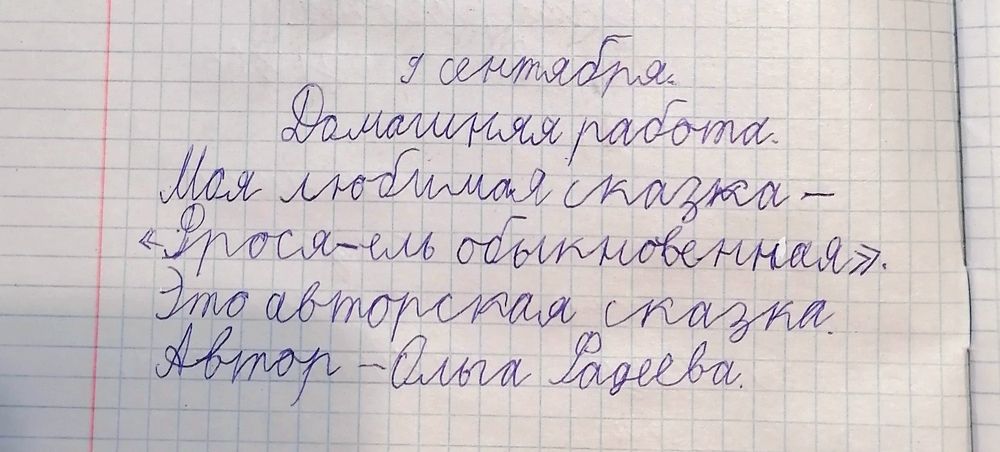 9 сентября.
Домашняя работа.
Моя любимая сказка –
«Фрося – ель обыкновенная».
Это авторская сказка.
Автор – Ольга Фадеева.